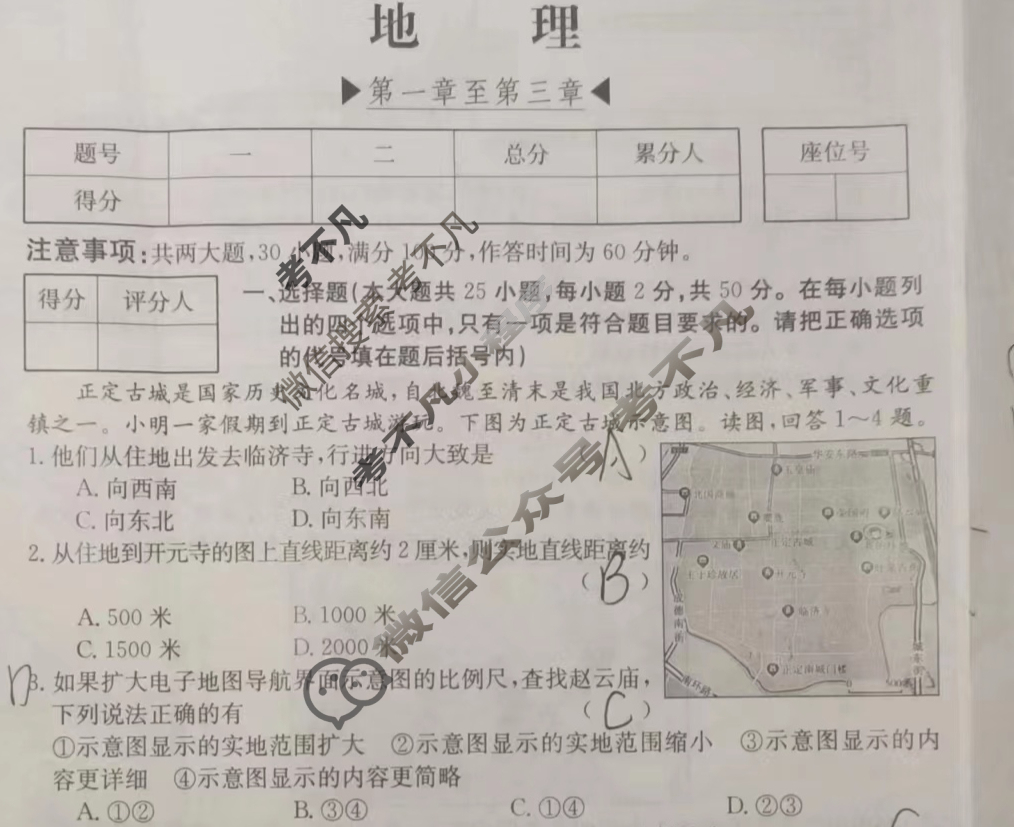 地 理
▶第一章至第三章◀
题号 一 二 总分 累分人 座位号
得分
注意事项:共两大题,30小题,满分100分,作答时间为60分钟。
得分 评分人
一、选择题(本大题共25小题,每小题2分,共50分。在每小题列
出的四个选项中,只有一项是符合题目要求的。请把正确选项
的代号填在题后括号内)
正定古城是国家历史文化名城,自北魏至清末是我国北方政治、经济、军事、文化重
镇之一。小明一家假期到正定古城游玩。下图为正定古城示意图。读图,回答1～4题。
1. 他们从住地出发去临济寺,行进方向大致是 (A)
A. 向西南 B. 向西北
C. 向东北 D. 向东南
2. 从住地到开元寺的图上直线距离约2厘米,则实地直线距离约
(B)
A. 500米 B. 1000米
C. 1500米 D. 2000米
D
3. 如果扩大电子地图导航界面示意图的比例尺,查找赵云庙,
下列说法正确的有 (C)
①示意图显示的实地范围扩大 ②示意图显示的实地范围缩小 ③示意图显示的内
容更详细 ④示意图显示的内容更简略
A. ①② B. ③④ C. ①④ D. ②③
华安东路
北国商城
文庙
正定古城
王士珍故居
开元寺
临济寺
正定南城门楼
成德南街
南环路
城东街
0 500米
考不凡
微信搜索考不凡
考不凡小程序
微信公众号考不凡